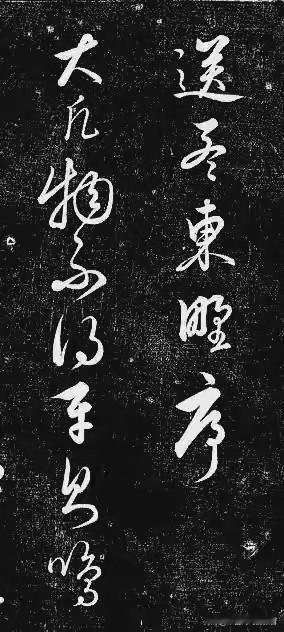 送孟東野序
大凡物不得平則鳴